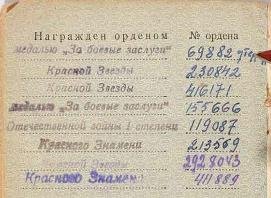 Награжден орденом № ордена
медалью „За боевые заслуги“ 69882
Красной Звезды 230842
Красной Звезды 416171
медалью „За боевые заслуги“ 155666
Отечественной войны 1 степени 119087
Красного Знамени 213569
Красной Звезды 2928043
Красного Знамени 411889